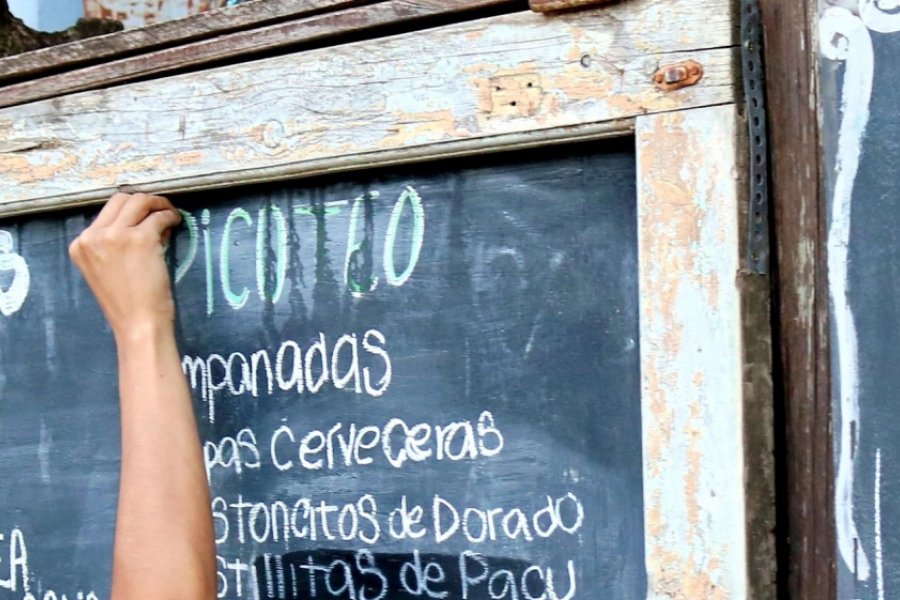 PiCOTEO
mpanadas
pas Cerveceras
stoncitos de Dorado
stillitas de Pacu